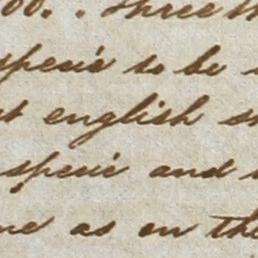 00. . Three th
specie to be
st english s
specie and
me as on the